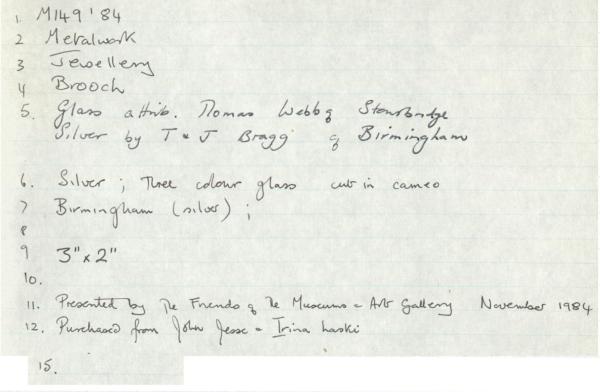 1. M149'84
2 Metalwork
3 Jewellery
4 Brooch
5. Glass attrib. Thomas Webb of Stourbridge
Silver by T & J Bragg of Birmingham
6. Silver ; Three colour glass cut in cameo
7 Birmingham (silver) ;
8
9 3" x 2"
10.
11. Presented by The Friends of the Museums & Art Gallery November 1984
12. Purchased from John Jesse & Irina Laski
15.